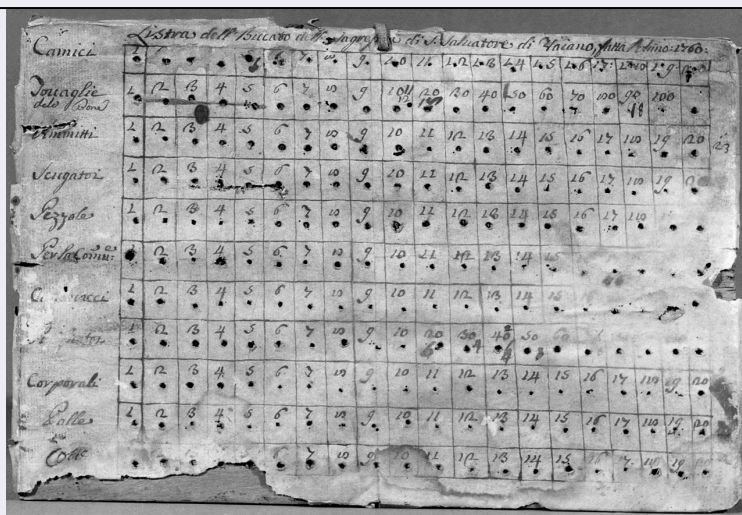 Listra dell' Bucato della Sagrestia di S. Salvatore di Vaiano, fatta l'Anno: 1760:
Camici 1 6 7 8 9 10 11 12 13 14 15 16 17 18 19
Tovaglie 1 2 3 4 5 6 7 8 9 10 20 30 40 50 60 70 80 90 100
delo 18
Ammitti 1 2 3 4 5 6 7 8 9 10 11 12 13 14 15 16 17 18 19 20 23
Sciugatoi 1 2 3 4 5 6 7 8 9 10 11 12 13 14 15 16 17 18 19 20
Pezzole 1 2 3 4 5 6 7 8 9 10 11 12 13 14 15 16 17 18
Per la Comu:ne 1 2 3 4 5 6 7 8 9 10 11 12 13 14 15
1 2 3 4 5 6 7 8 9 10 11 12 13 14 15
1 2 3 4 5 6 7 8 9 10 20 30 40 50 60
Corporali 1 2 3 4 5 6 7 8 9 10 11 12 13 14 15 16 17 18 19 20
Palle 1 2 3 4 5 6 7 8 9 10 11 12 13 14 15 16 17 18 19 20
6 7 8 9 10 11 12 13 14 15 16 17 18 19 20